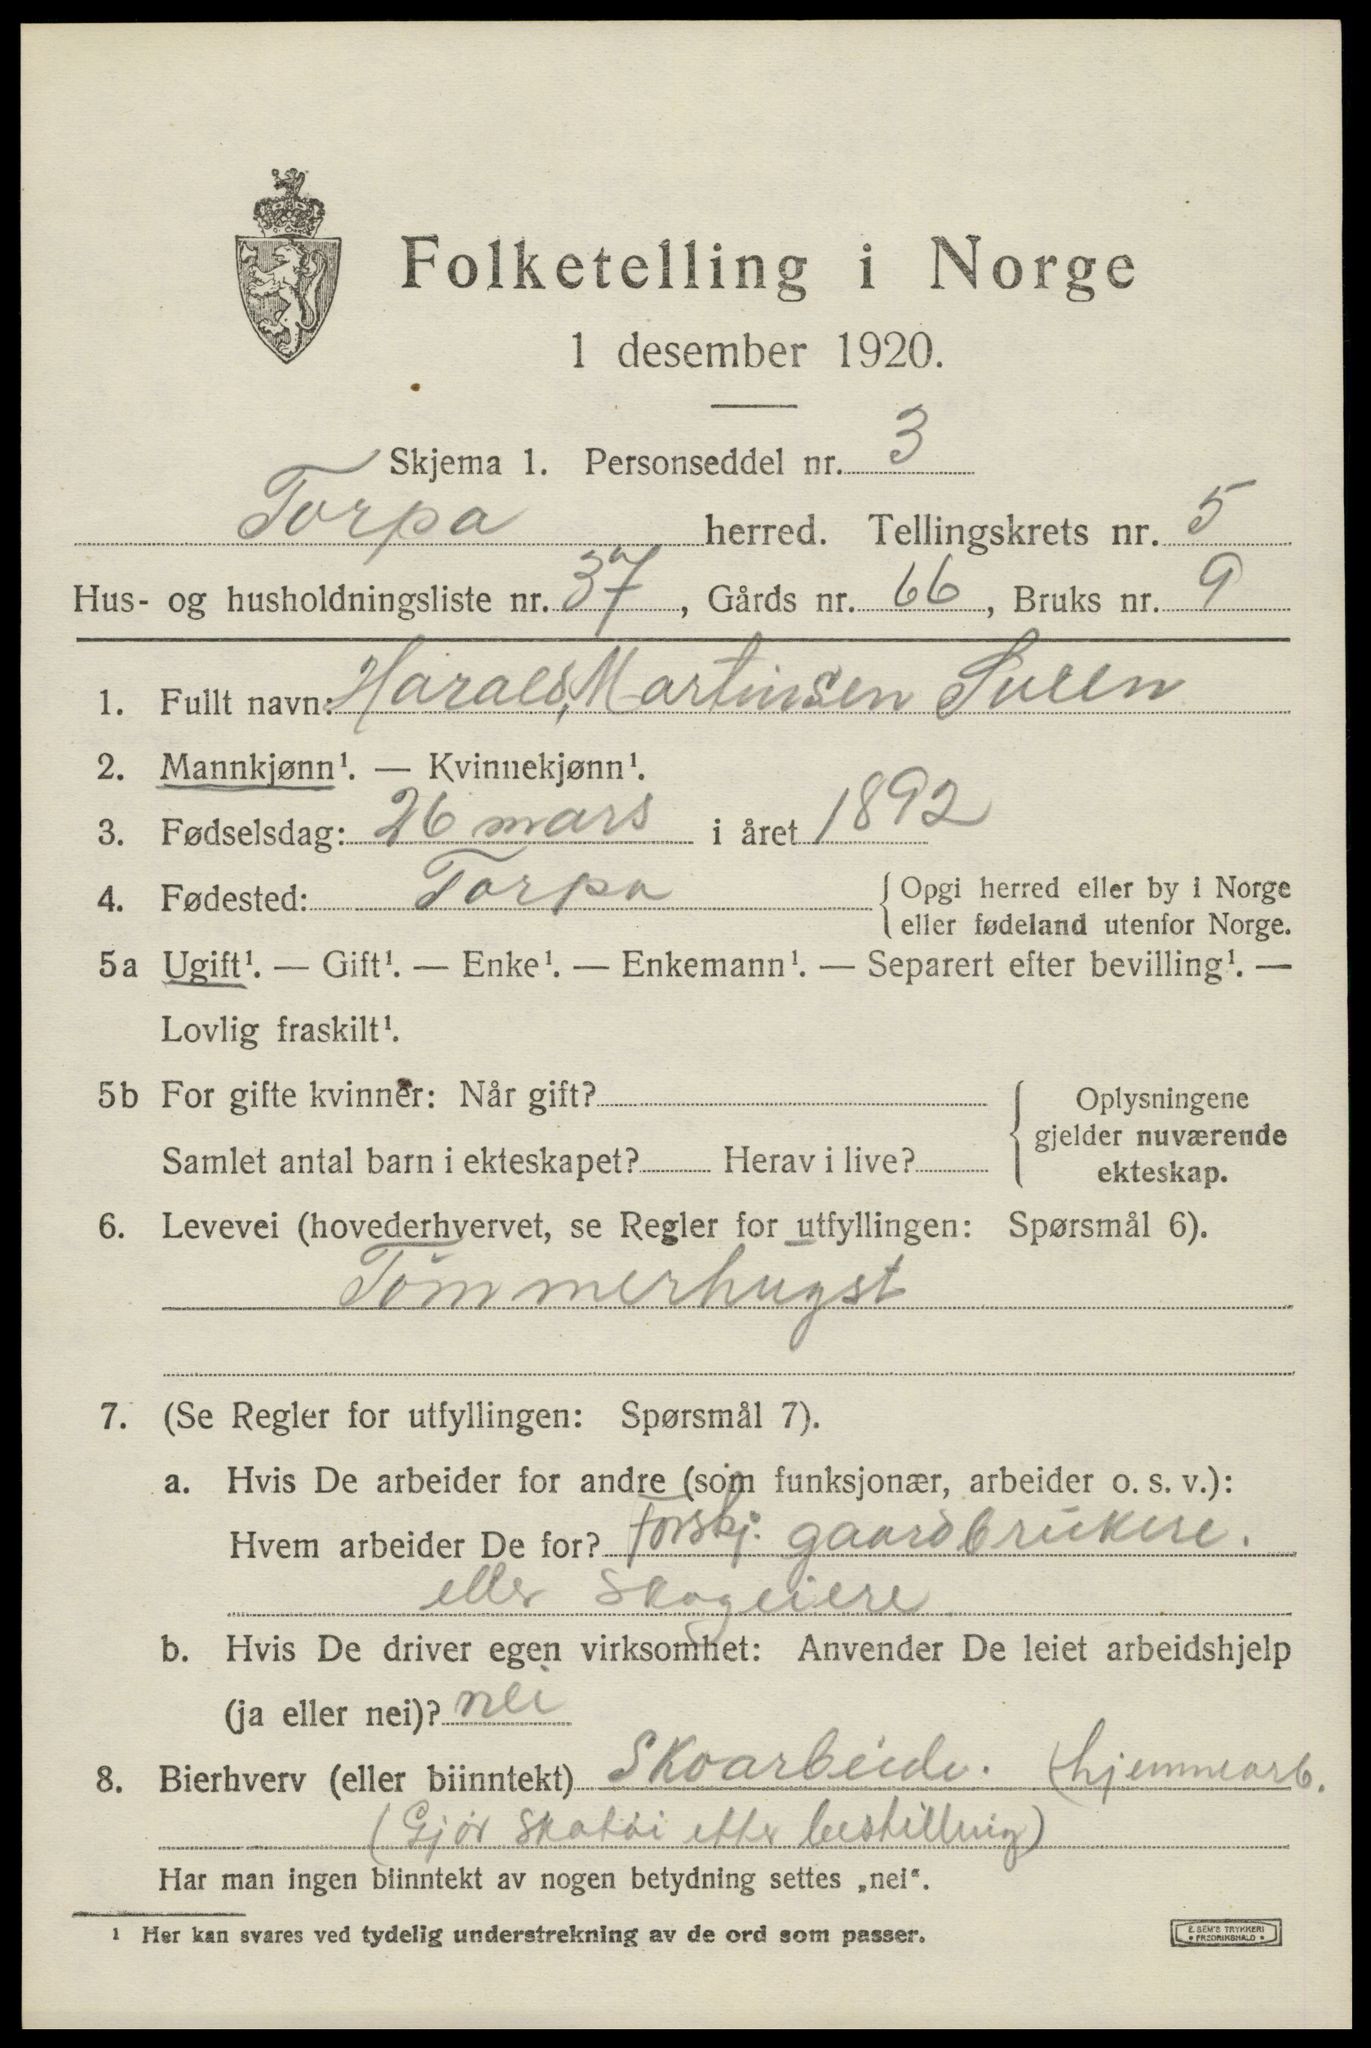 Folketelling i Norge
1 desember 1920.
Skjema 1. Personseddel nr. 3
Torpa herred. Tellingskrets nr. 5
Hus- og husholdningsliste nr. 37, Gårds nr. 66, Bruks nr. 9
1. Fullt navn: Harald, Martinsen Sveen
2. Mannkjønn¹. — Kvinnekjønn¹.
3. Fødselsdag: 26 mars i året 1892
4. Fødested: Torpa { Opgi herred eller by i Norge
eller fødeland utenfor Norge.
5a Ugift¹. — Gift¹. — Enke¹. — Enkemann¹. — Separert efter bevilling¹. —
Lovlig fraskilt¹.
5b For gifte kvinner: Når gift? { Oplysningene
gjelder nuværende
Samlet antal barn i ekteskapet? Herav i live?
ekteskap.
6. Levevei (hovederhvervet, se Regler for utfyllingen: Spørsmål 6).
Tömmerhugst
7. (Se Regler for utfyllingen: Spørsmål 7).
a. Hvis De arbeider for andre (som funksjonær, arbeider o. s. v.):
Hvem arbeider De for? forskj. gaardbrukere.
eller Skogeiere
b. Hvis De driver egen virksomhet: Anvender De leiet arbeidshjelp
(ja eller nei)? nei
8. Bierhverv (eller biinntekt) Skoarbeide. (hjemmearb.
(Gjör Skotöi etter bestilling)
Har man ingen biinntekt av nogen betydning settes „nei“.
¹ Her kan svares ved tydelig understrekning av de ord som passer.
E. SEM'S TRYKKERI
• FREDRIKSHALD •